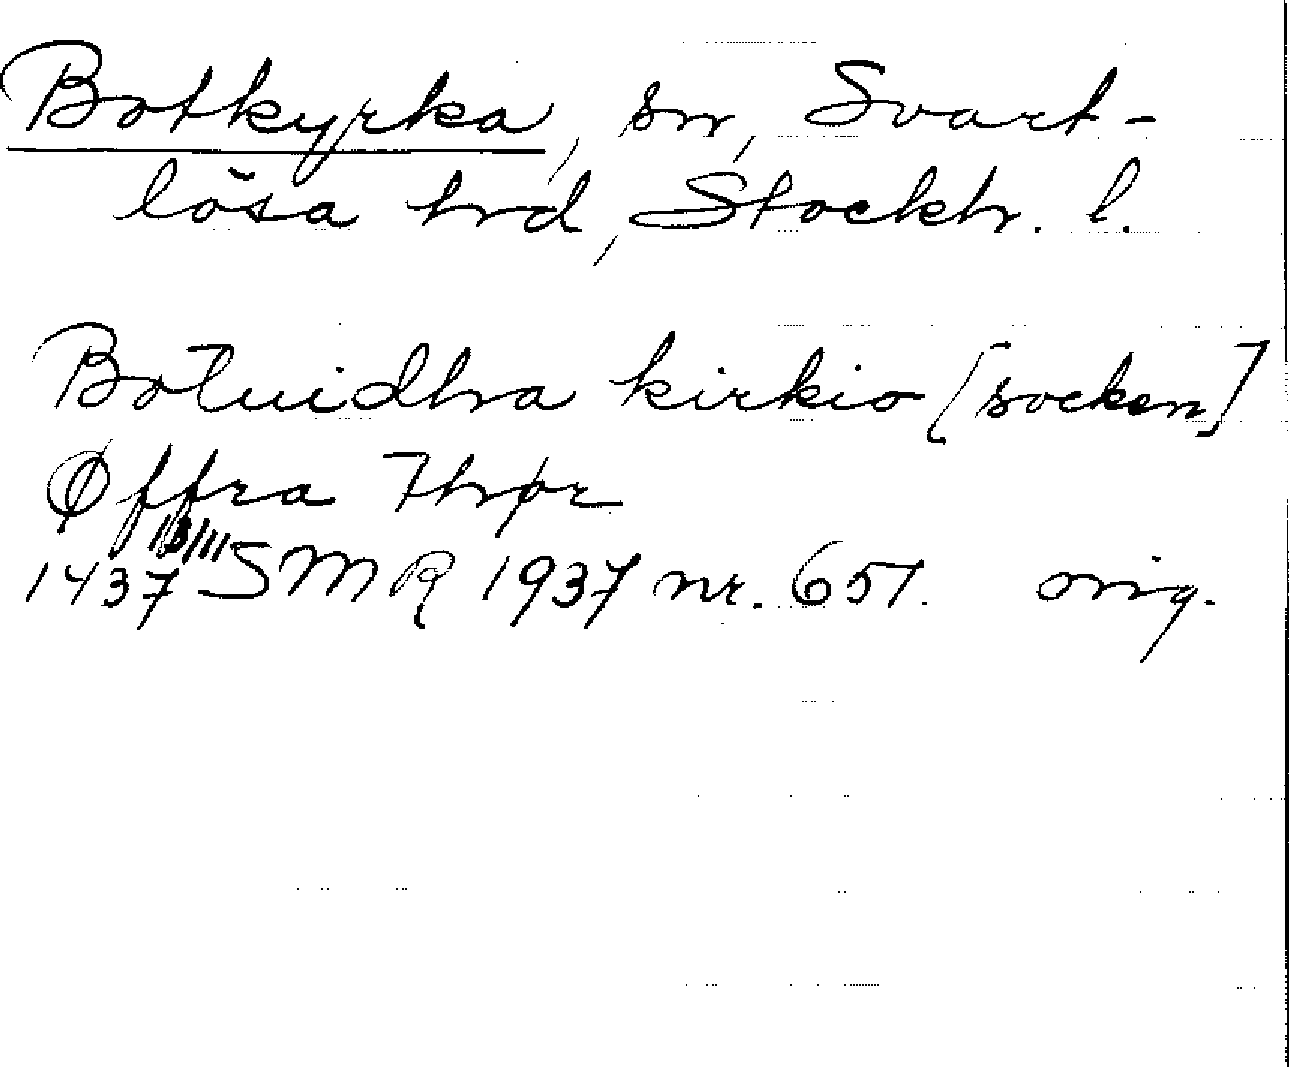 Botkyrka, sn, Svart-
lösa hrd, Stockh. l.
Botuidha kirkio [socken]
Øffra Thorp
1437 SMR 1937 nr. 651. orig.